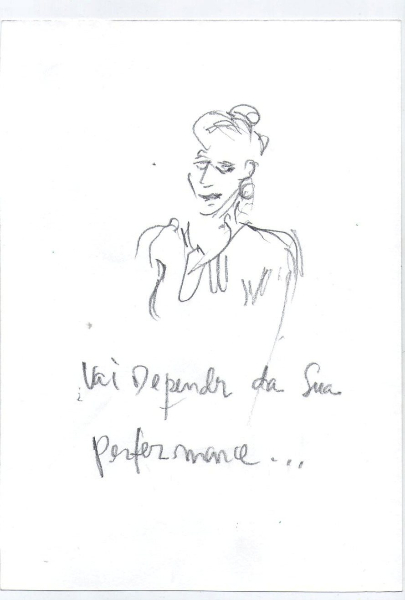 Vai Depender da Sua
Performance...